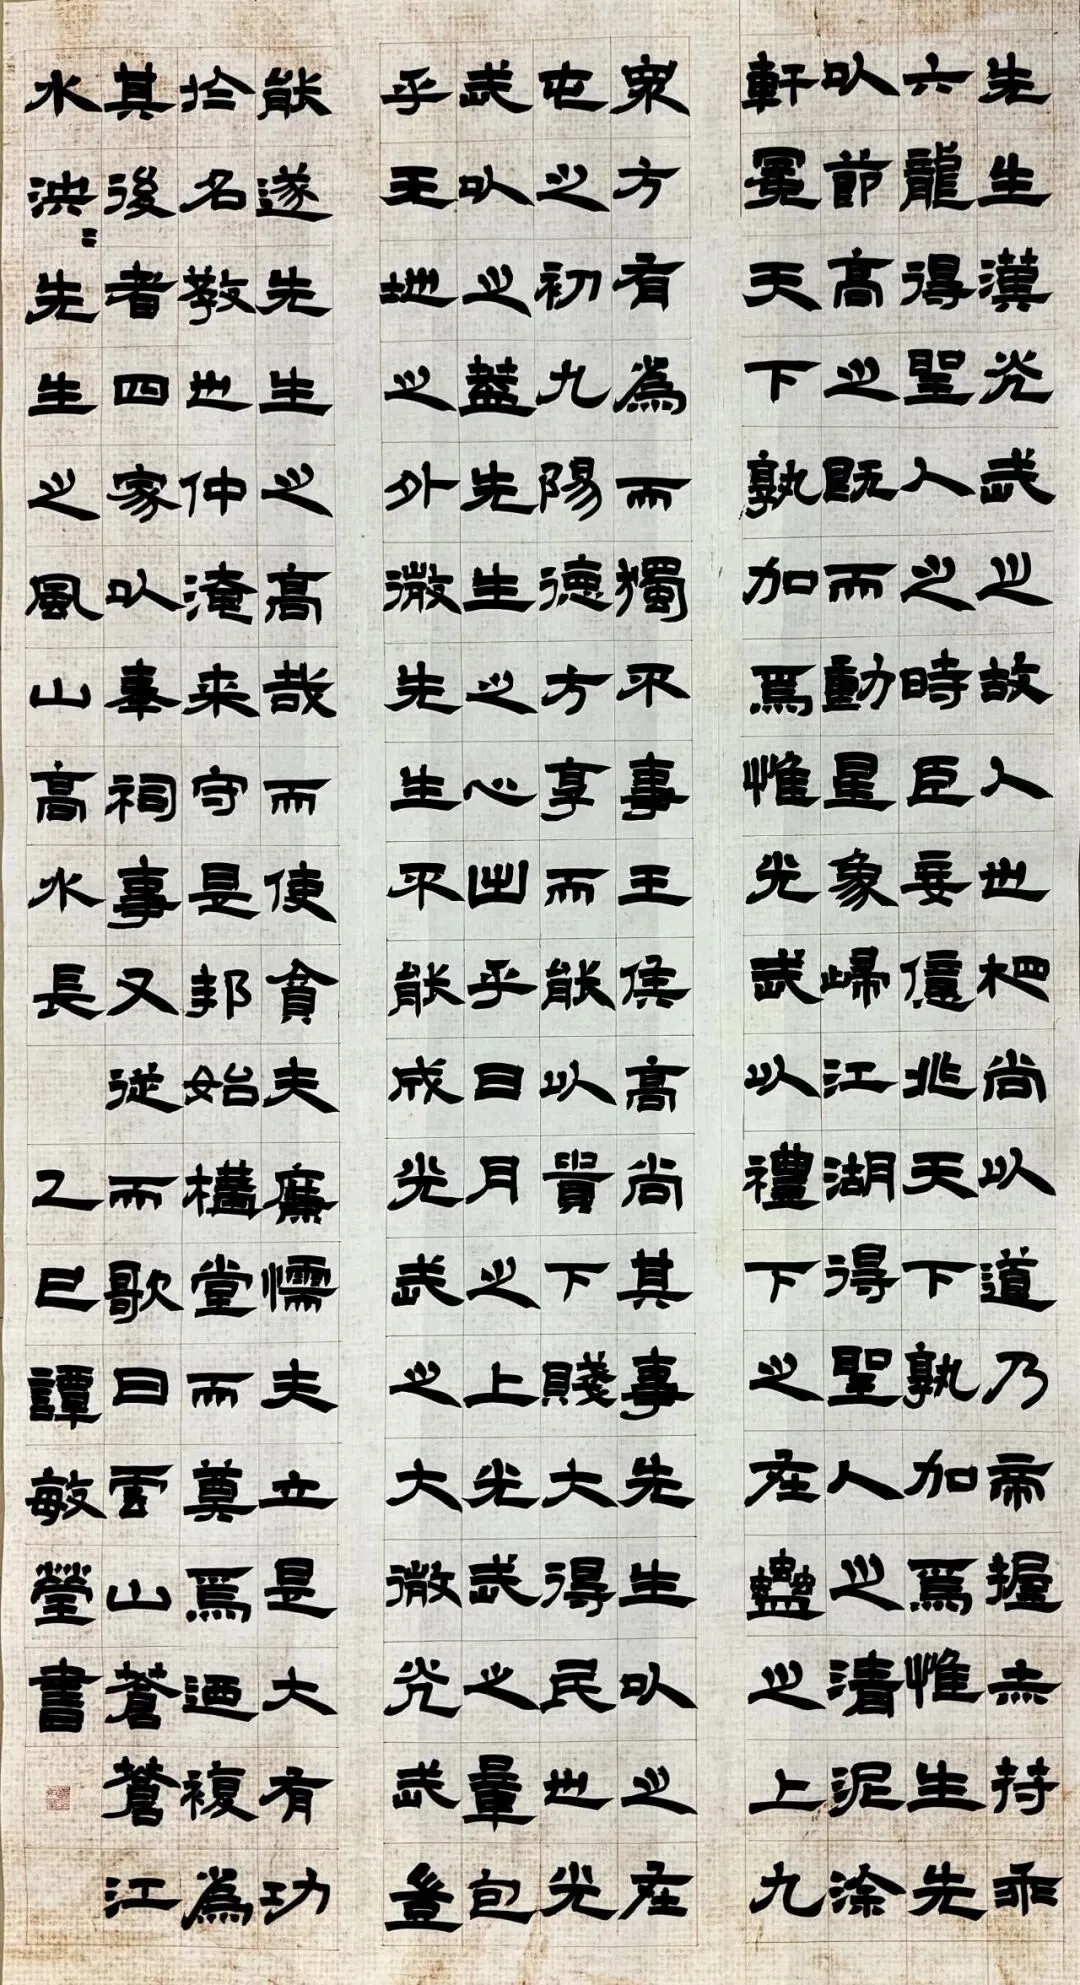 先生漢光武之故人也相尚以道及帝握赤符乘
六龍得聖人之時臣妾億兆天下孰加焉惟生先
以節高之既而動星象歸江湖得聖人之清泥涂
軒冕天下孰加焉惟光武以禮下之在蠱之上九
衆方有為而獨不事王侯高尚其事先生以之在
屯之初九陽德方亨而能以貴下賤大得民也光
武以之蓋先生之心出乎日月之上光武之量包
乎天地之外微先生不能成光武之大微光武豈
能遂先生之高哉而使貪夫廉懦夫立是大有功
於名教也仲淹来守是邦始構堂而奠焉迺複為
其後者四家以奉祠事又從而歌曰雲山蒼蒼江
水泱〻先生之風山高水長 乙巳譚敏瑩書